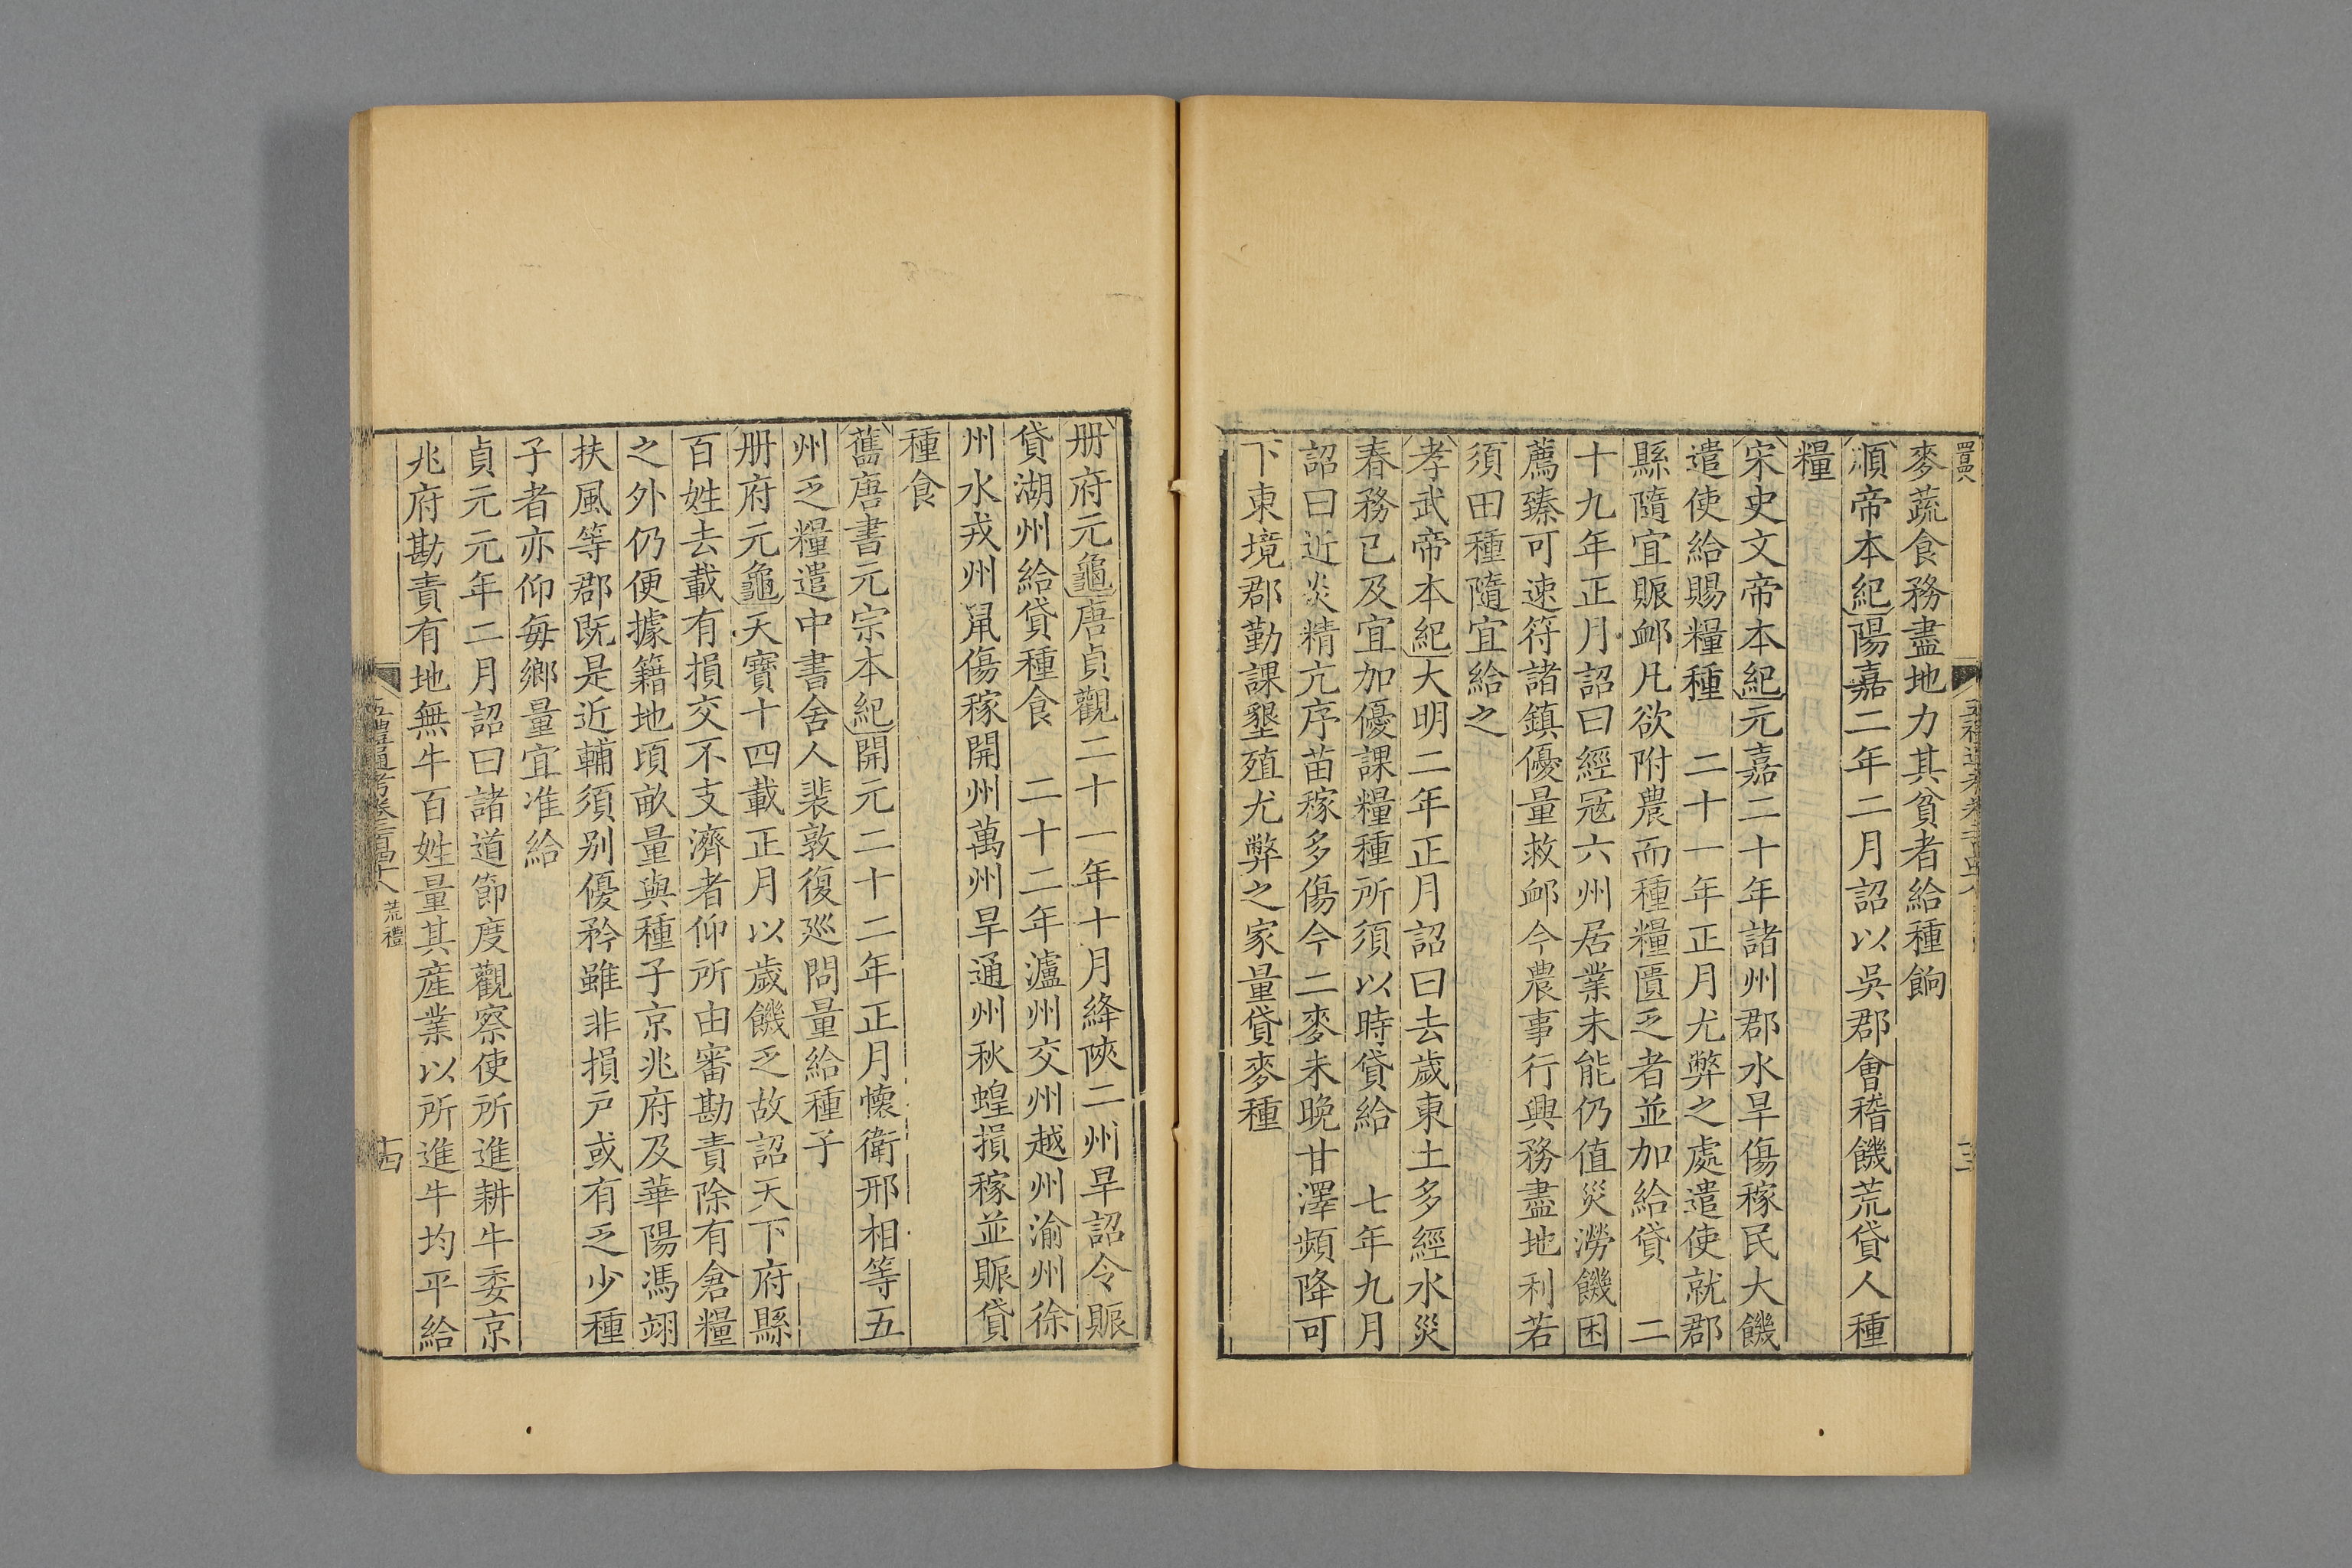 麥蔬食務盡地力其貧者給種餉
順帝本紀陽嘉二年二月詔以吳郡會稽饑荒貸人種
糧
宋史文帝本紀元嘉二十年諸州郡水旱傷稼民大饑
遣使給賜糧種　二十一年正月尤弊之處遣使就郡
縣隨宜賑衈凡欲附農而種糧匱乏者並加給貸　二
十九年正月詔曰經冦六州居業未能仍值災澇饑困
薦臻可速符諸鎮優量救衈今農事行興務盡地利若
須田種隨宜給之
孝武帝本紀大明二年正月詔曰去歲東土多經水災
春務已及宜加優課糧種所須以時貸給　七年九月
詔曰近炎精亢序苗稼多傷今二麥未晚甘澤頻降可
下東境郡勤課墾殖尤弊之家量貸麥種
册府元龜唐貞觀二十一年十月絳陝二州旱詔令賑
貸湖州給貸種食　二十二年瀘州交州越州渝州徐
州水戎州鼠傷稼開州萬州旱通州秋蝗損稼並賑貸
種食
舊唐書元宗本紀開元二十二年正月懷衛邢相等五
州乏糧遣中書舍人裴敦復廵問量給種子
册府元龜天寶十四載正月以歲饑乏故詔天下府縣
百姓去載有損交不支濟者仰所由審勘責除有倉糧
之外仍便據籍地頃畝量與種子京兆府及華陽馮翊
扶風等郡既是近輔須别優矜雖非損戸或有乏少種
子者亦仰每鄉量宜准給
貞元元年二月詔曰諸道節度觀察使所進耕牛委京
兆府勘責有地無牛百姓量其產業以所進牛均平給
五禮通考卷二百四十八 荒禮
十四